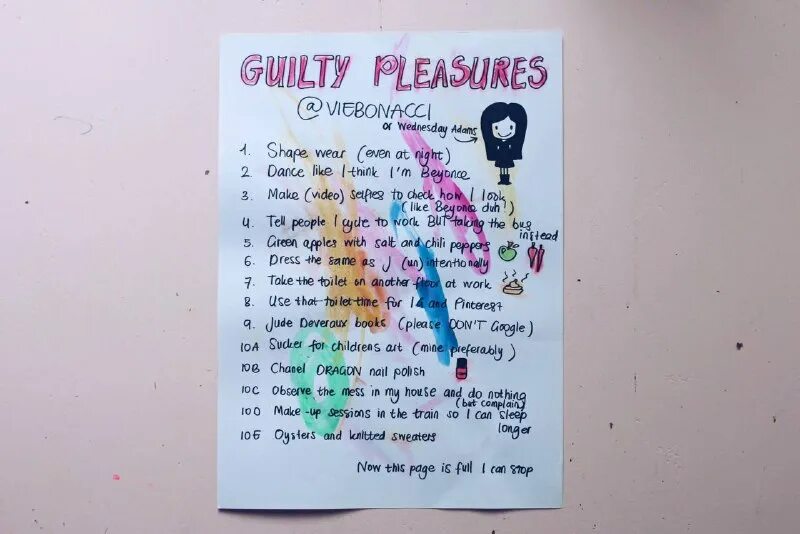 GUILTY PLEASURES
@VIEBONACCI
or Wednesday Adams
1. Shape wear (even at night)
2. Dance like I think I'm Beyonce
3. Make (video) selfies to check how I look
(like Beyonce duh!)
4. Tell people I cycle to work BUT taking the bus
instead
5. Green apples with salt and chili peppers
6. Dress the same as J (un)intentionally
7. Take the toilet on another floor at work
8. Use that toilet time for IG and Pinterest
9. Jude Deveraux books (please DON'T Google)
10A Sucker for childrens art (mine preferably)
10B Chanel DRAGON nail polish
10C Observe the mess in my house and do nothing
(but complain)
10D Make-up sessions in the train so I can sleep
longer
10E Oysters and knitted sweaters
Now this page is full I can stop